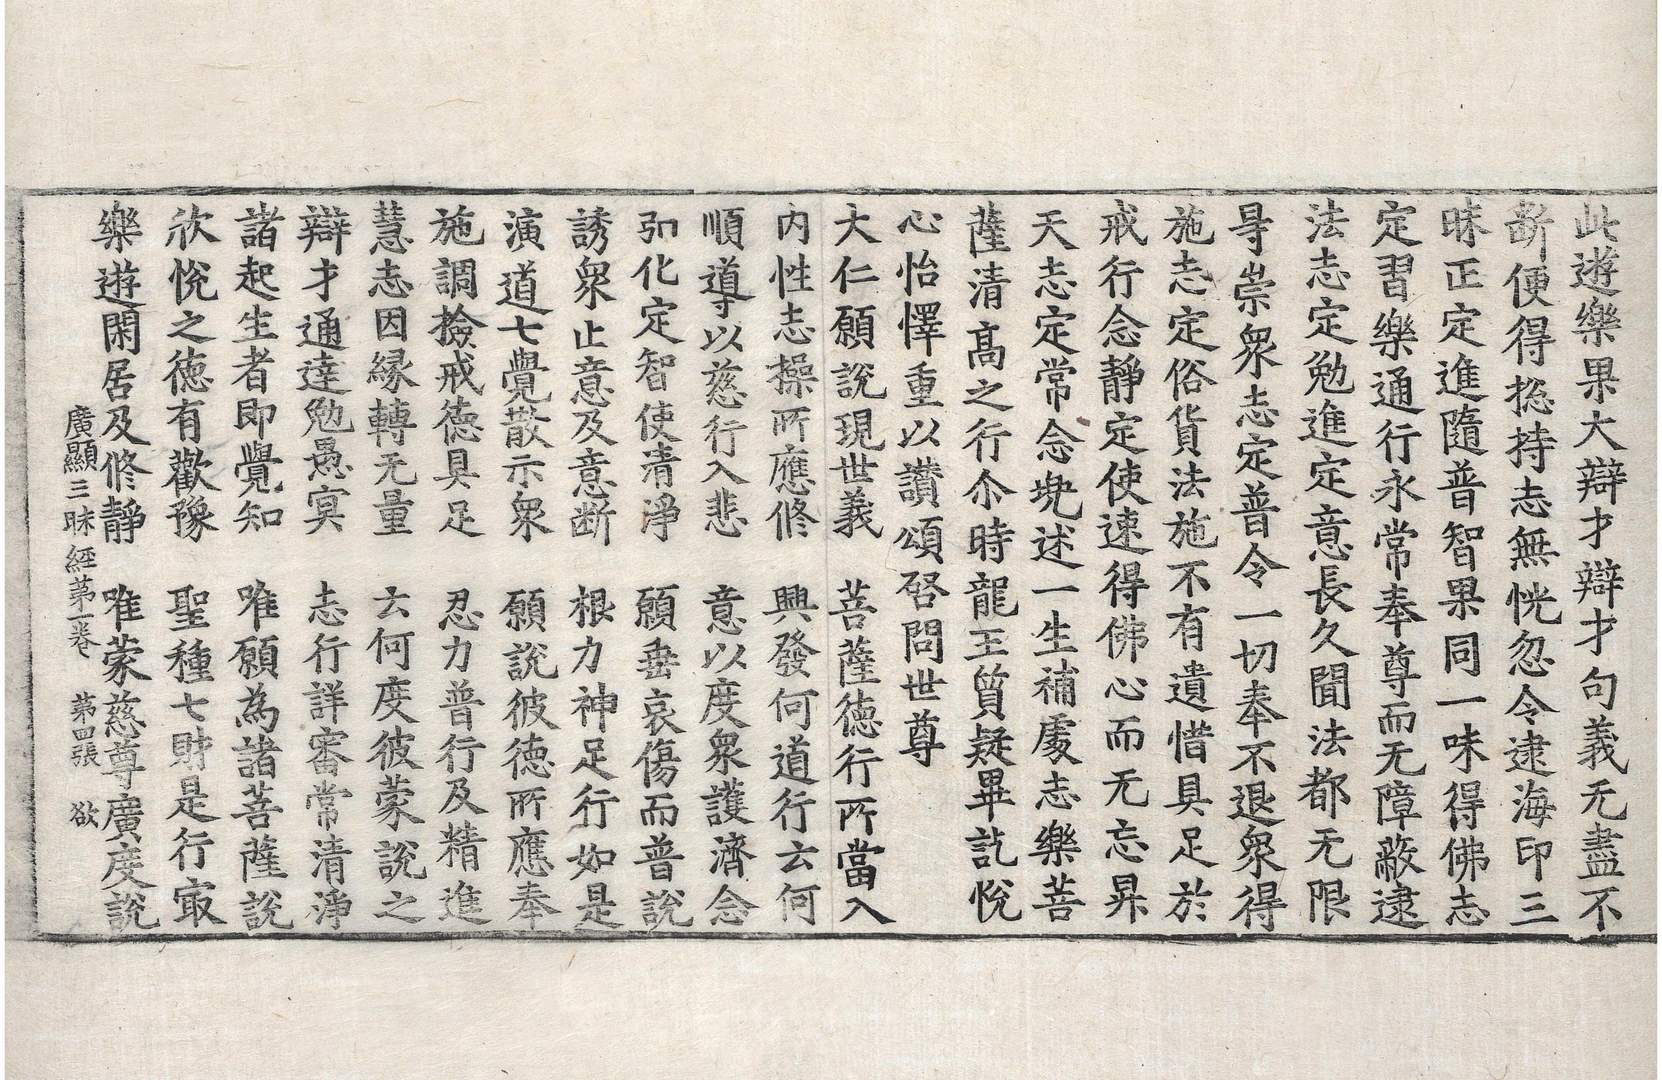 此遊樂果大辯才辯才句義无盡不
斷便得揔持志無恍忽今逮海印三
昧正定進隨普智果同一味得佛志
定習樂通行永常奉尊而无障蔽逮
法志定勉進定意長久聞法都无限
㝵崇衆志定普令一切奉不退衆得
施志定俗貨法施不有遺惜具足於
戒行念靜定使速得佛心而无忘昇
天志定常念兠述一生補處志樂菩
薩清高之行尒時龍王質疑畢訖悅
心怡懌重以讃頌啓問世尊
大仁願說現世義　菩薩德行所當入
內性志操所應修　興發何道行云何
順導以慈行入悲　意以度衆護濟念
引化定智使清淨　願垂哀傷而普說
誘衆止意及意斷　根力神足行如是
演道七覺散示衆　願說彼德所應奉
施調撿戒德具足　忍力普行及精進
慧志因緣轉无量　云何度彼蒙說之
辯才通達勉愚冥　志行詳審常清淨
諸起生者即覺知　唯願為諸菩薩說
欣悅之德有歡豫　聖種七財是行㝡
樂遊閑居及修靜　唯蒙慈尊廣度說
廣顯三昧經第一卷　第四張　欲